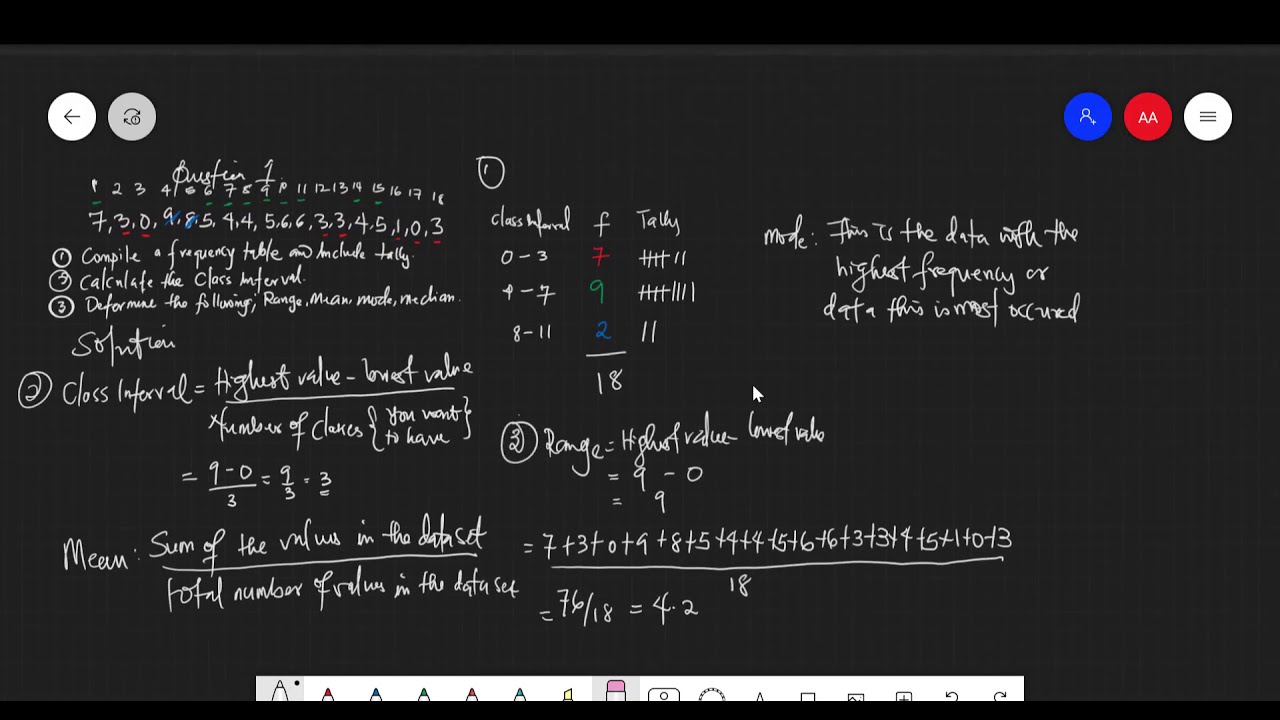 AA
Question 1
1 2 3 4 5 6 7 8 9 10 11 12 13 14 15 16 17 18
7, 3, 0, 9, 8, 5, 4, 4, 5, 6, 6, 3, 3, 4, 5, 1, 0, 3
① Compile a frequency table and Include tally.
② Calculate the Class Interval.
③ Determine the following; Range, Mean, mode, median.
Solution
② Class Interval = Highest value - lowest value
Number of Classes {You want
to have}
= 9-0 = 9 = 3
3 3
①
class Interval f Tally
0-3 7 |||| ||
4-7 9 |||| ||||
8-11 2 ||
18
③ Range = Highest value - lowest value
= 9 - 0
= 9
Mean: Sum of the values in the dataset
total number of values in the data set
= 7+3+0+9+8+5+4+4+5+6+6+3+3+4+5+1+0+3
18
= 76/18 = 4.2
mode: This is the data with the
highest frequency or
data this is most occured